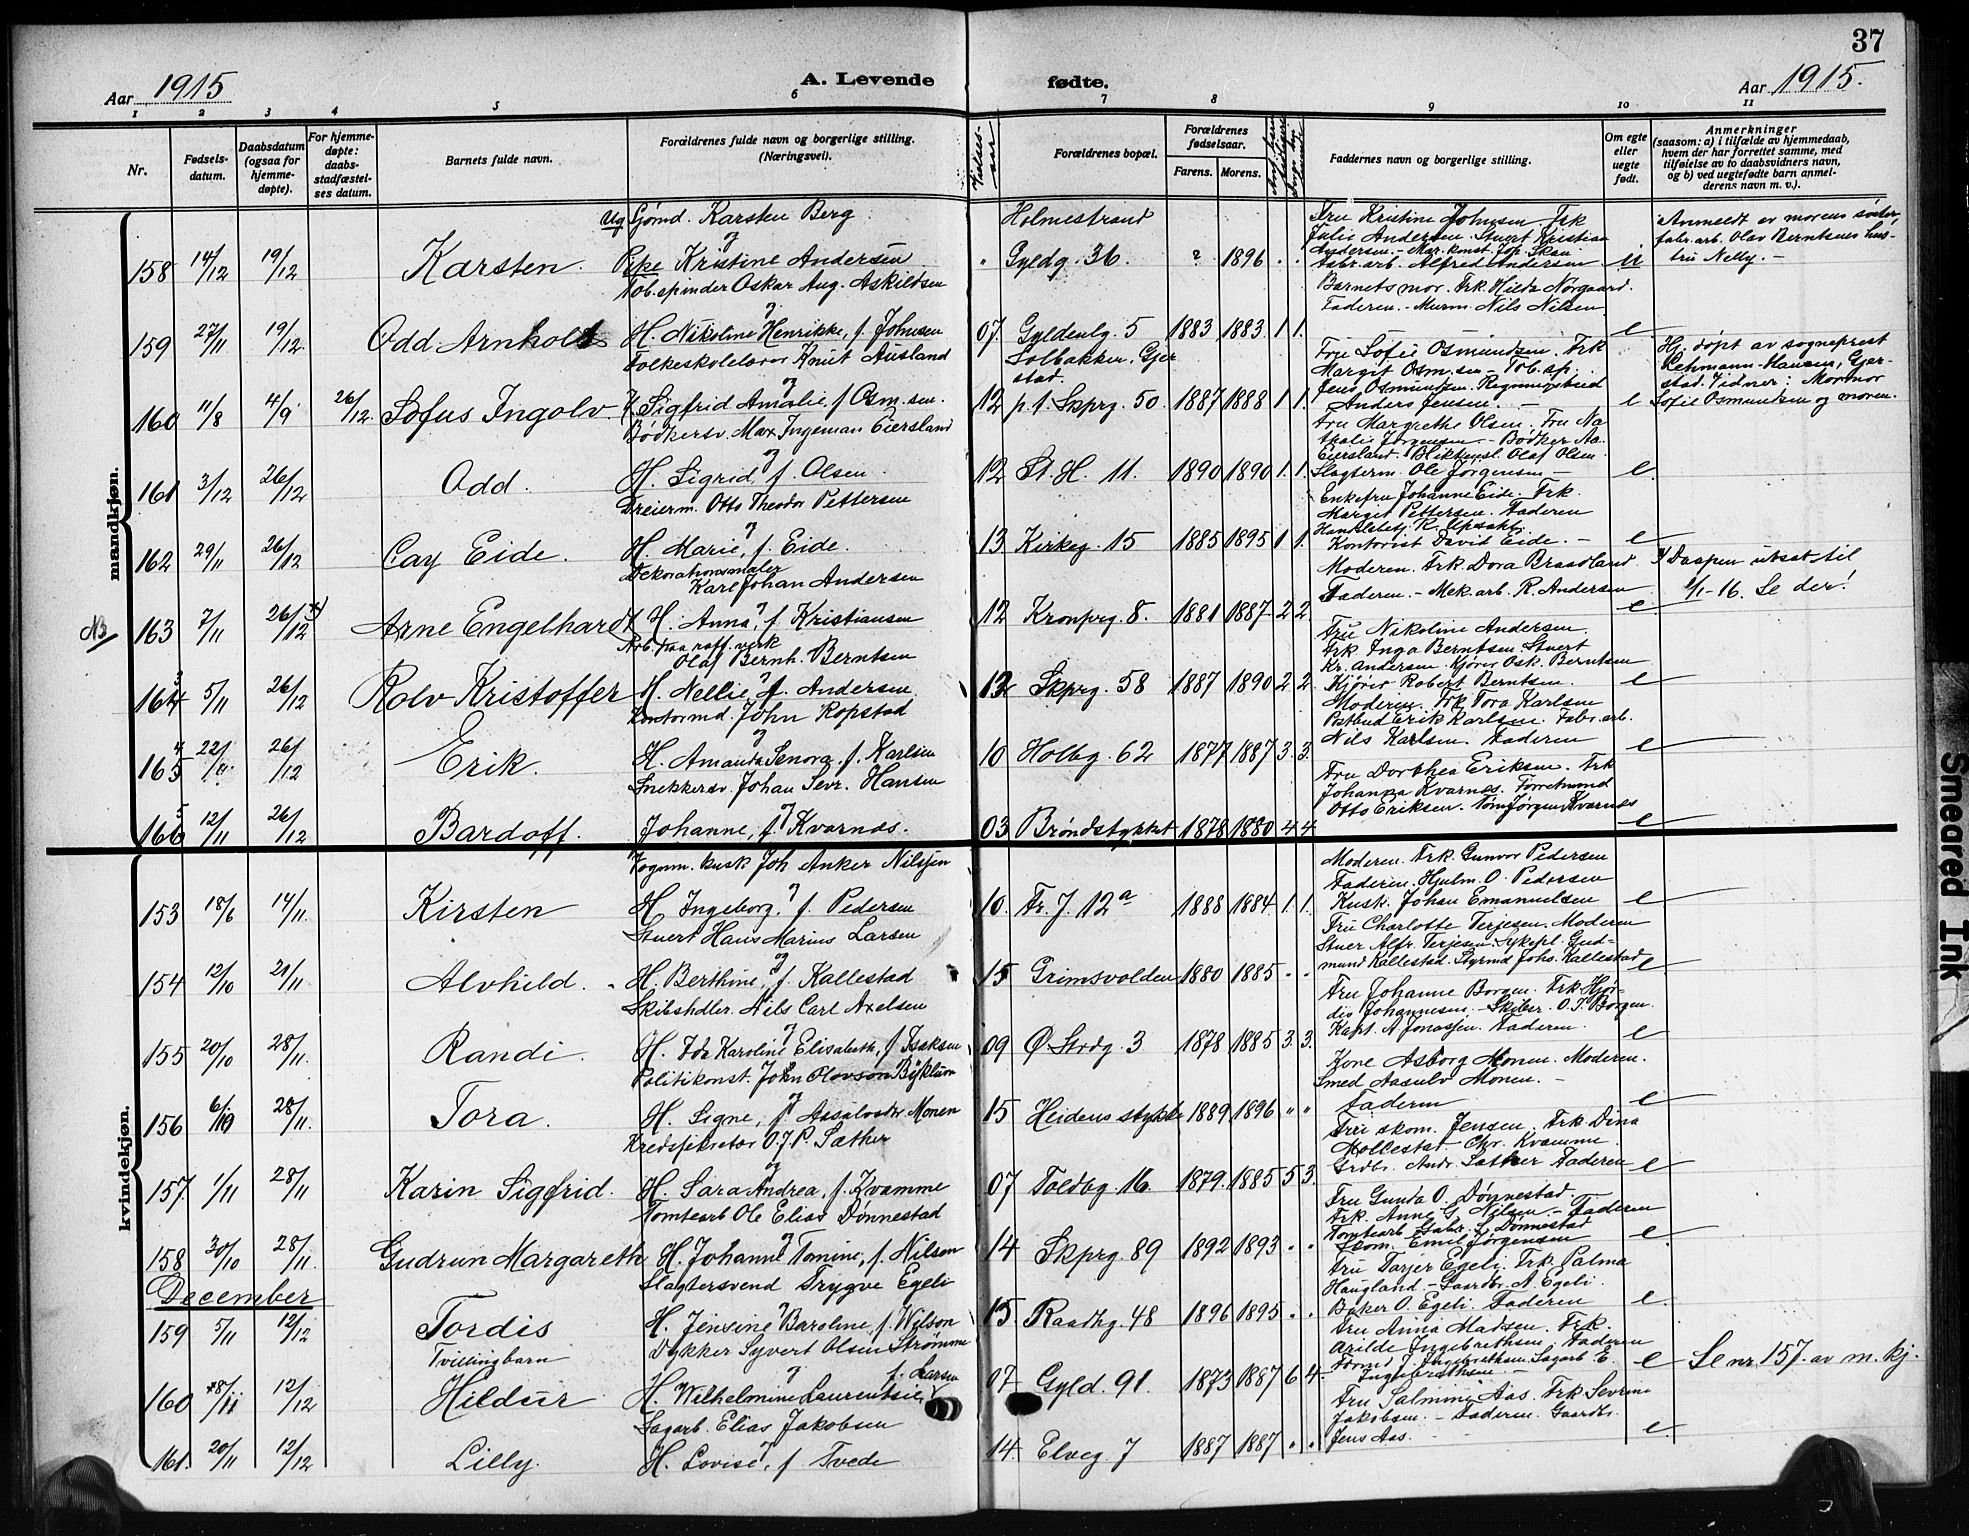 37
Aar 1915
A. Levende
fødte.
Aar 1915.
1 2 3 4 5 6 7 8 9 10 11
Nr.
Fødsels-
datum.
Daabsdatum
(ogsaa for
hjemme-
døpte).
For hjemme-
døpte:
daabs-
stadfæstel-
ses datum.
Barnets fulde navn.
Forældrenes fulde navn og borgerlige stilling.
(Næringsvei).
Vielses-
aar
Forældrenes bopæl.
Forældrenes
fødselsaar.
Farens. Morens.
Faddernes navn og borgerlige stilling.
Om egte
eller
uegte
født.
Anmerkninger
(saasom: a) i tilfælde av hjemmedaab,
hvem der har forrettet samme, med
tilføielse av to daabsvidners navn,
og b) ved uegtefødte barn anmel-
derens navn m. v.).
mandkjøn.
158 14/12 19/12 Karsten.
Ug Sjømd. Karsten Berg
og
Pike Kristine Andersen
Holmestrand
Gyldg. 36. ? 1896 . .
Fru Kristine Johnsen Frk
Julie Andersen. Stuert Kristian
Andersen. Mar. konst. Joh. Skau
Fabr. arb. Alfred Andersen u
Anmeldt av morens søster,
fabr. arb. Olav Berntsens hus-
tru Nelly. -
159 27/11 19/12 Odd Arnholdt
Tob. spinder Oskar Aug. Askildsen
og
H. Nikoline Henrikke, f. Johnsen
07. Gyldenlg. 5 1883 1883 1 1.
Barnets mor. Frk. Hilda Nørgaard.
Faderen. Murm. Nils Nilsen e
160 11/8 4/9 26/12 Sofus Ingolv
Folkeskolelærer Knut Ausland
og
H. Sigfrid Amalie, f. Osm.sen.
Solbakken. Gjer
stad.
12 p. t. Skprg. 50. 1887 1888 1 1.
Fru Sofie Osmundsen. Frk
Margit Osm.sen - Tob. sp.
Jens Osmundsen. Regningsbud
Anders Jensen. - e
Hj. døpt av sogneprest
Lehmann-Hansen, Gjer-
stad. Vidner: Mormor
Sofie Osmundsen og moren.
161 3/12 26/12 Odd.
Bødkersv. Max Ingeman Eiersland
og
H. Sigrid, f. Olsen
12 St. H. 11. 1890 1890 1. 1.
Fru Margrethe Olsen. Fru Na
thalie Jørgensen - Bødker Aa.
Eiersland. Bliktensl. Olaf Olsen
Slagterm. Ole Jørgensen - e
162 29/11 26/12 Cay Eide.
Dreierm. Otto Theodor Pettersen
og
H. Marie, f. Eide.
13 Kirkeg. 15 1885 1895 1 1.
Enkefru Johanne Eide. Frk.
Margit Pettersen. Faderen
Handelsbetj. R. Upsahl.
Kontorist David Eide. - e
NB 163 7/11 26/12 x) Arne Engelhardt
Dekorationsmaler
Karl Johan Andersen
og
H. Anna, f. Kristiansen
12 Kronprg. 8. 1881 1887 2 2
Moderen. Frk. Dora Braadland
Faderen. - Mek. arb. R. Andersen e
x) Daapen utsat til
6/1-16. Se der!
164 3 5/11 26/12 Rolv Kristoffer
Arb. paa raff. verk
Olaf Bernh. Berntsen
og
H. Nellie, f. Andersen.
12 Skprg. 58 1887 1890 2 2
Fru Nikoline Andersen
Frk. Inga Berntsen Stuert
Kr. Andersen. Kjører Osk. Berntsen
Kjører Robert Berntsen. e
165 4 22/9 26/12 Erik.
Kontormd. John Ropstad
og
H. Amanda Senora, f. Karlsen
10 Holbg. 62 1877 1887 3. 3.
Moderen. Frk Tora Karlsen
Postbud Erik Karlsen. Fabr. arb.
Nils Karlsen. Faderen e
166 5 12/11 26/12 Bardoff.
Snekkersv. Johan Sevr. Hansen
og
Johanne, f. Kvarnæs.
03 Brøndstykket 1878 1880 4 4
Fru Dorthea Eriksen. Frk
Johanna Kvarnæs. Forretnmd
Otto Eriksen. Tømr Jørgen Kvarnæs e
kvindekjøn.
153 18/6 14/11. Kirsten
Vognm. kusk Joh. Anker Nilsen
og
H. Ingeborg, f. Pedersen
10. Fr. J. 12a 1888 1884 1. 1.
Moderen. Frk. Gunvor Pedersen
Faderen. Hjulm. O. Pedersen
Kusk. Johan Emanuelsen e
154 12/10 21/11. Alvhild.
Stuert Hans Marius Larsen
og
H. Berthine, f. Kallestad
15 Grimsvolden 1880 1885 . .
Fru Charlotte Terjesen. Moderen
Stuer Alfr. Terjesen. Sykepl. Gud-
mund Kallestad. Styrmd Johs. Kallestad e
155 20/10 28/11. Randi.
Skibshdler. Nils Carl Axelsen
og
H. Ida Karoline Elisabeth, f. Isaksen
09 Ø. Strdg. 3 1878 1885 3. 3.
Fru Johanne Borgen. Frk. Hjør-
dis Johannesen. - Skibsr. O. T. Borgen.
Kapt. A. Jonassen. Faderen. e
156 6/10 28/11. Tora.
Politikonst. John Olovson Byklum
og
H. Signe, f. Aasulvsdtr Monen
15 Heidens stykke 1889 1896 " "
Kone Asborg Monen. Moderen.
Smed Aasulv Monen. -
Faderen e
157. 1/11 28/11 Karin Sigfrid.
Kredssekretær O. J. P. Sæther
og
H. Sara Andrea, f. Kvamme
07 Toldbg. 16. 1879. 1885 5 3.
Fru skom. Jensen. Frk Dina
Mollestad. Chr. Kvamme.
Grdbr. Andr. Sæther Faderen e
158 30/10 28/11. Gudrun Margareth
Tomtearb Ole Elias Dønnestad
og
H. Johanne Tomine, f. Nilsen
14 Skprg. 89 1892 1893 . .
Fru Gunda O. Dønnestad
Frk. Anne G. Nilsen. - Faderen
Tomtearb Gabr. S. Dønnestad
Skom. Emil Jørgensen e
December
159 5/11 12/12 Tordis
Slagtersvend Trygve Egeli
og
H. Jensine Baroline, f. Wilson
15 Raadhg. 48 1896 1895 . .
Fru Tarjer Egeli. Frk. Palma
Haugland - Gaardbr. A. Egeli.
Baker O. Egeli. Faderen e.
160 8/11 12/12 Tvillingbarn
Hildur
Dykker Syvert Olsen Strømme
og
H. Wilhelmine Laurentsie, f. Larsen
07 Gyld. 91. 1873 1887 6 4
Fru Anna Madsen. Frk.
Arilde Ingebrethsen. Faderen
Formd J. Ingebrethsen. Sagarb. E.
Ingebrethsen. - e
Se nr. 157. av m. kj.
161. 20/11 12/12 Lilly.
Sagarb. Elias Jakobsen
og
H. Lovise, f. Tvede
14. Elveg. 7 1887 1887 . .
Fru Salmine Aas. Frk Sevrine
Jakobsen. - Faderen. Gaardbr.
Jens Aas. - e
Smeared Ink